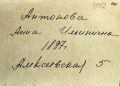 Антонова
Анна Ильинична
1897г.
Алексеевская 5